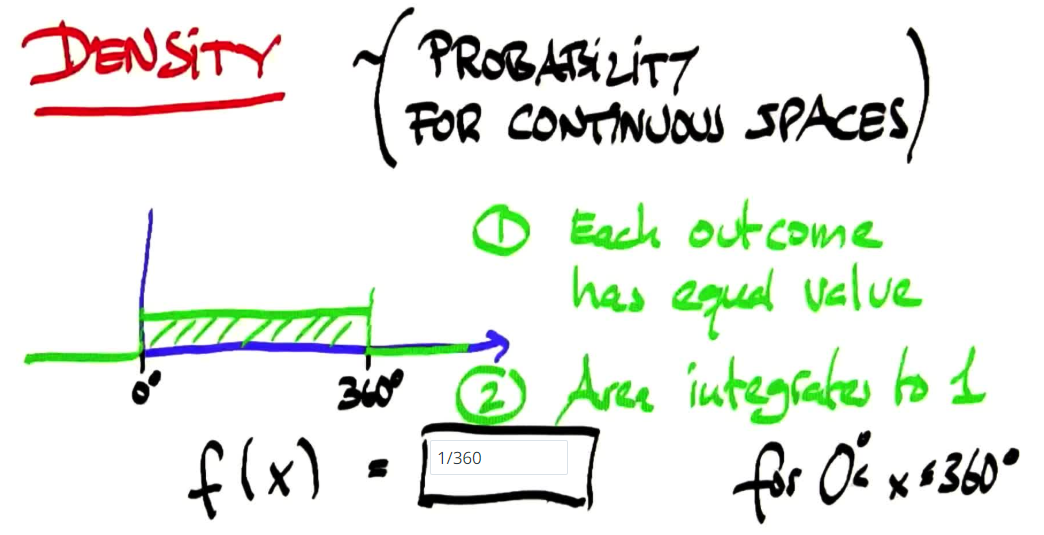 DENSITY ~ (PROBABILITY
FOR CONTINUOUS SPACES)
① Each outcome
has equal value
0° 360°
② Area integrates to 1
f(x) = 1/360 for 0° ≤ x ≤ 360°